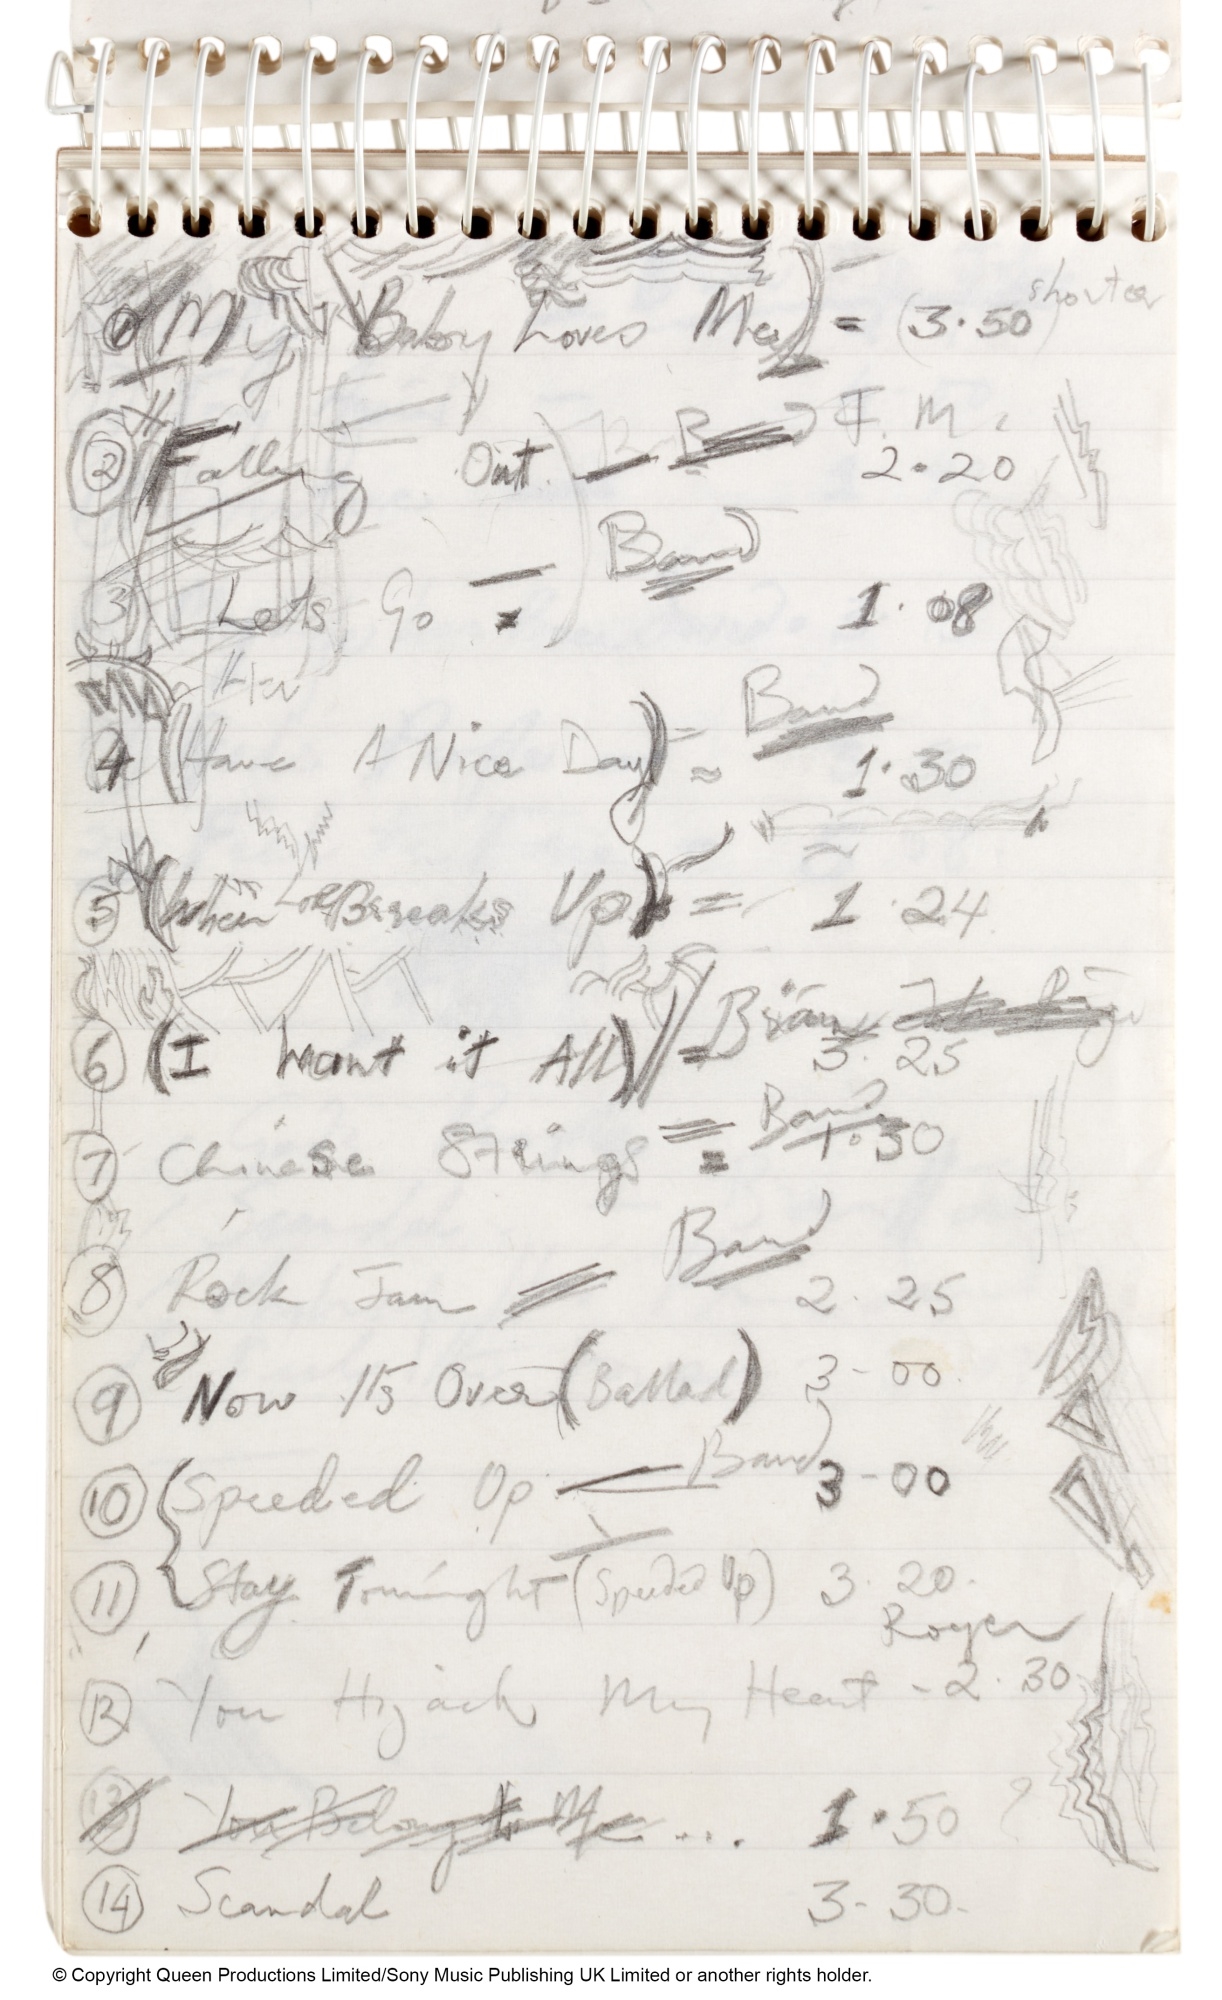 1 (My Baby Loves Me) = (3.50) shorter
F. M.
2 Falling Out. Band 2.20
Band
3 Lets Go = 1.08
Hav
Band
4 (Have A Nice Day) = 1.30
5 (When Love Breaks Up) = 1.24
Brian
6 (I Want it All) = 3.25
Band
7 Chinese Strings = 1.30
Band
8 Rock Jam 2.25
9 Now It's Over (Ballad) 3-00.
Band
10 Speeded Up 3-00
11 Stay Tonight (Speeded Up) 3.20.
Roger
12 You Hijack My Heart - 2.30
13 You Belong to Me .... 1.50 ?
14 Scandal 3-30-
© Copyright Queen Productions Limited/Sony Music Publishing UK Limited or another rights holder.